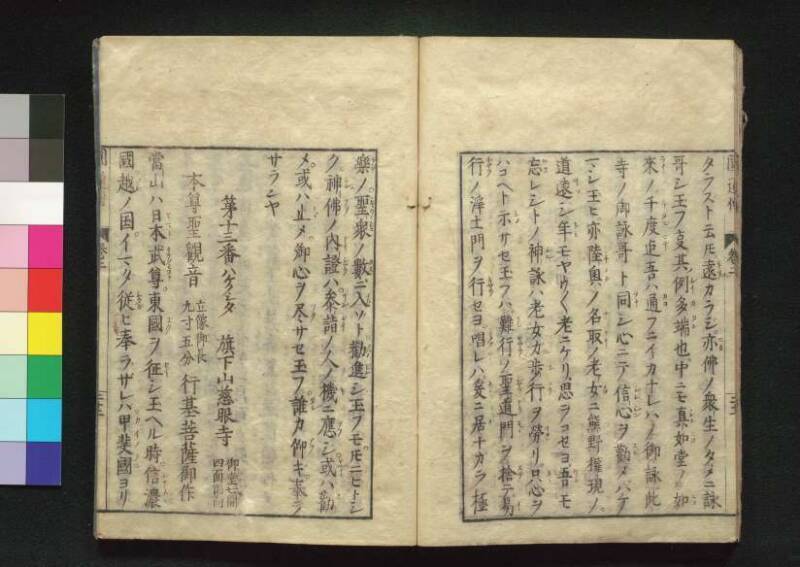 タフスト云モ遠カラジ亦佛ノ衆生ノタメニ詠
哥シ玉フ支其例多端也中ニモ真如堂ノ如
來ノ千度迄吾ハ通フニイカナレハノ御詠此
寺ノ御詠哥ト同シ心ニテ信心ヲ勸メハゲ
マシ玉ヒ亦陸奥ノ名取ノ老女ニ熊野權現ノ
道遠シ年モヤウ〱老ニケリ思ヲコセヨ吾モ
忘レシトノ神詠ハ老女カ歩行ヲ勞リ只心ヲ
ハコヘト示サセ玉フハ難行ノ聖道門ヲ捨テ易
行ノ浄土門ヲ行セヨ唱レハ爰ニ居ナカラ極
樂ノ聖衆ノ數ニ入ソト勸進シ玉フモ天ニヒトシ
ク神佛ノ内證ハ参詣ノ人ノ機ニ應シ或ハ勸
メ或ハ止メ御心ヲ尽サセ玉フ誰カ仰キ奉ラ
サランヤ
第十三番 旗下山慈眼寺 御堂六間四面
本尊聖觀音 立像御長九寸五分 行基菩薩御作
當山ハ日本武尊東國ヲ征シ玉ヘル時信濃
國越ノ国イマタ従ヒ奉ラザレハ甲斐國ヨリ